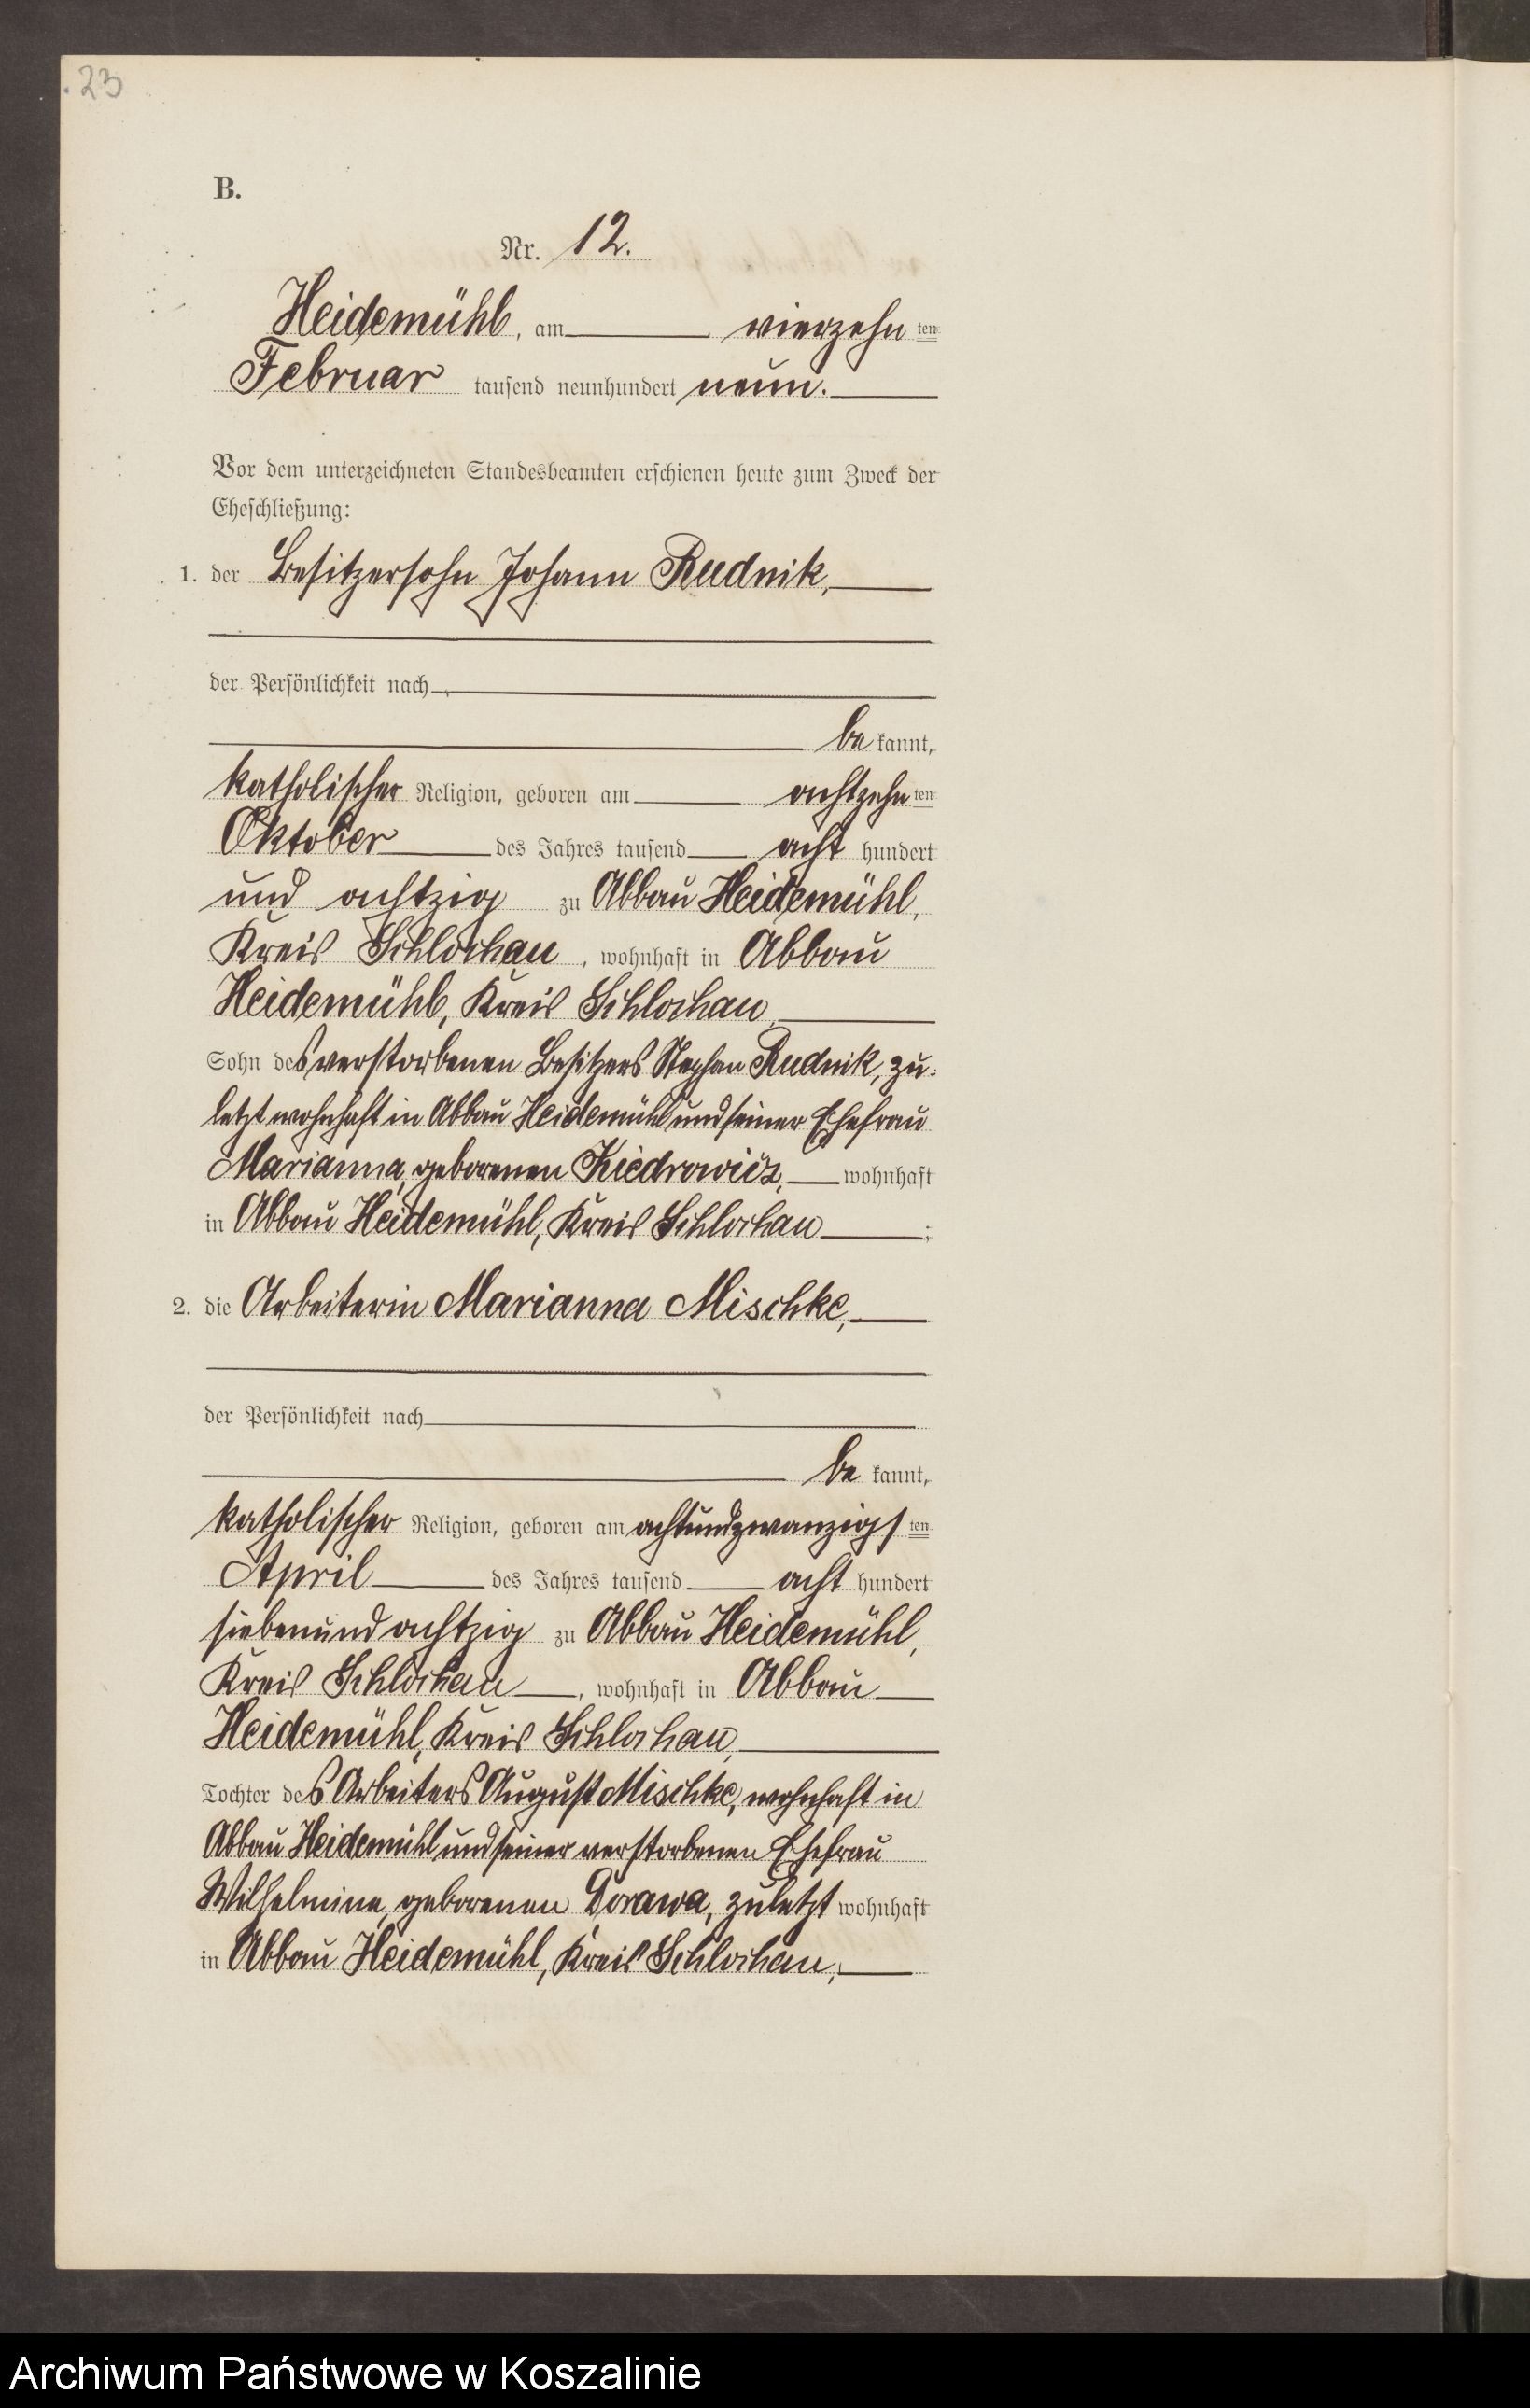 23
B.
Nr. 12.
Heidemühl, am vierzehn ten
Februar tausend neunhundert neun.
Vor dem unterzeichneten Standesbeamten erschienen heute zum Zweck der
Eheschließung:
1. der Besitzersohn Johann Rudnik,
der Persönlichkeit nach
be kannt,
katholischer Religion, geboren am achtzehn ten
Oktober des Jahres tausend acht hundert
und achtzig zu Abbau Heidemühl,
Kreis Schlochau, wohnhaft in Abbau
Heidemühl, Kreis Schlochau,
Sohn des verstorbenen Besitzers Stephan Rudnik, zu-
letzt wohnhaft in Abbau Heidemühl und seiner Ehefrau
Marianna, geborenen Kiedrowicz, wohnhaft
in Abbau Heidemühl, Kreis Schlochau;
2. die Arbeiterin Marianna Mischke,
der Persönlichkeit nach
be kannt,
katholischer Religion, geboren am achtundzwanzigs ten
April des Jahres tausend acht hundert
siebenundachtzig zu Abbau Heidemühl,
Kreis Schlochau, wohnhaft in Abbau
Heidemühl, Kreis Schlochau,
Tochter des Arbeiters August Mischke, wohnhaft in
Abbau Heidemühl und seiner verstorbenen Ehefrau
Wilhelmine, geborenen Dorawa, zuletzt wohnhaft
in Abbau Heidemühl, Kreis Schlochau,
Archiwum Państwowe w Koszalinie